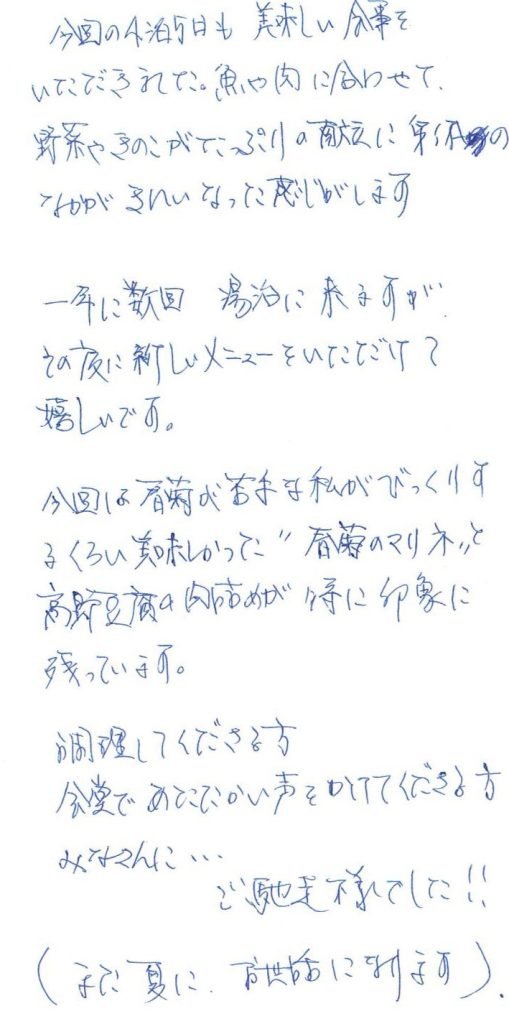 今回の4泊5日も 美味しい食事を
いただきました。魚や肉に合わせて、
野菜やきのこがたっぷりの献立に身体の
なかが きれいなった感じがします
一年に数回 湯治に来ますが、
その度に新しいメニューをいただけて
嬉しいです。
今回は春菊が苦手な私がびっくりす
るくらい美味しかった"春菊のマリネ"と
高野豆腐の肉詰めが 特に印象に
残っています。
調理してくださる方
食堂であたたかい声をかけてくださる方
みなさんに…
ご馳走様でした!!
(また夏に、お世話になります).